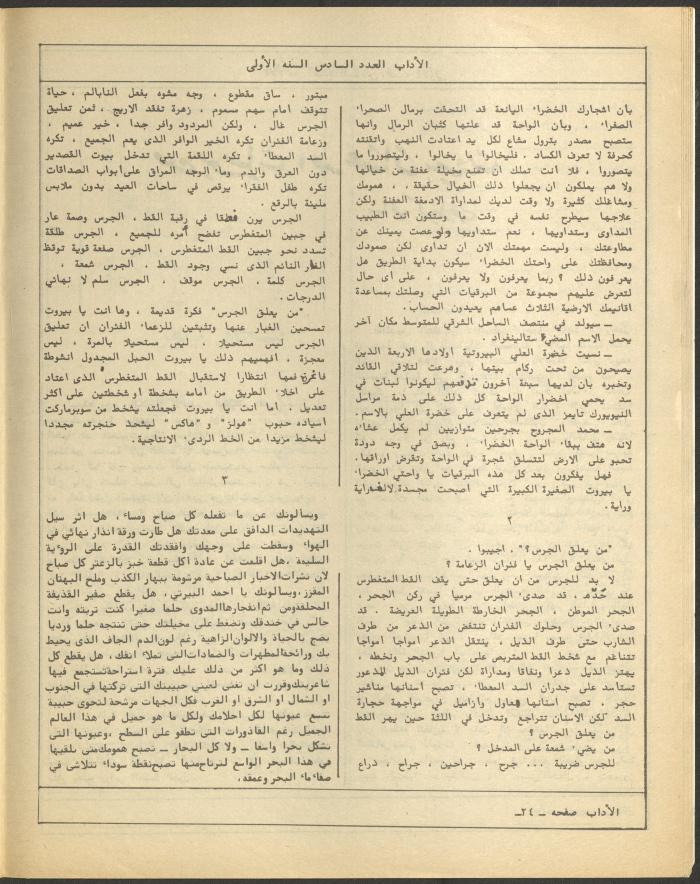 الأداب العدد السادس السنه الأولى
بأن اشجارك الخضراء اليانعة قد التحفت برمال الصحراء
الصفراء ، وبأن الواحة قد علتها كثبان الرمال وانها
ستصبح مصدر بترول مشاع لكل يد اعتادت النهب واتقنته
كحرفة لا تعرف الكساد . فليخالوا ما يخالوا ، وليتصوروا ما
يتصوروا ، فلا أنت تملك ان تمنع مخيلة عفنة من خيالها
ولا هم يملكون ان يجعلوا ذلك الخيال حقيقة ، ، همومك
ومشاغلك كثيرة ولا وقت لديك لمداواة الادمغة العفنة ولكن
علاجها سيطرح نفسه في وقت ما وستكون انت الطبيب
المداوى وستداويها ، نعم ستداويها ولو عصت يمينك عن
مطاوعتك ، وليست مهمتك الان ان تداوى لكن صمودك
ومحافظتك على واحتك الخضراء سيكون بداية الطريق هل
يعرفون ذلك ؟ ربما يعرفون ولا يعرفون ، على أى حال
لتعرض عليهم مجموعة من البرقيات التي وصلتك بمساعدة
اقانيمك الارضية الثلاث عساهم يعيدون الحساب .
ــ سيولد في منتصف الساحل الشرقي للمتوسط مكان آخر
يحمل الاسم المضيء ستالينغراد .
ــ نسيت خضرة العلي البيروتية اولادها الاربعة الذين
يصيحون من تحت ركام بيتها ، وهرعت لتلاقي القائد
وتخبره بأن لديها سبعة آخرون تتوقعهم ليكونوا لبنات في
سد يحمي اخضرار الواحة كل ذلك على ذمة مراسل
النيويورك تايمز الذى لم يتعرف على خضرة العلي بالاسم.
ــ محمد المجروح بجرحين متوازيين لم يكمل عشاءه
لانه هتف ببقاء الواحة الخضراء ، وبصق في وجه دودة
تحبو على الارض لتتسلق شجرة في الواحة وتقرض اوراقها.
فهل يفكرون بعد كل هذه البرقيات يا واحتي الخضراء
يا بيروت الصغيرة الكبيرة التي اصبحت مجسدة
وراية .
٢
"من يعلق الجرس؟" . اجيبوا .
من يعلق الجرس يا فئران الزعامة ؟
لا بد للجرس من ان يعلق حتى يقف القط المتغطرس
عند حدّه ، قد صدىء الجرس مرميا في ركن الجحر ،
الجحر الموطن ، الجحر الخارطة الطويلة العريضة . قد
صدىء الجرس وحلوك الفئران تنتفض من الذعر من طرف
الشارب حتى طرف الذيل ، ينتقل الذعر امواجا امواجا
تتناغم مع شخط القط المتربص على باب الجحر ونخطه ،
يهتز الذيل ذعرا ونفاقا ومداراة لكن فئران الذيل المذعور
تستأسد على جدران السد المعطاء ، تصبح أسنانها مناشير
حجر ، تصبح اسنانها معاول وأزاميل في مواجهة حجارة
السد لكن الاسنان تتراجع وتدخل في اللثة حين يهر القط
من يعلق الجرس ؟
من يضيء شمعة على المدخل ؟
للجرس ضريبة ... جرح ، جراحين ، جراح ، ذراع
مبتور ، ساق مقطوع ، وجه مشوه بفعل النابالم ، حياة
تتوقف امام سهم مسموم ، زهرة تفقد الاريج ، ثمن تعليق
الجرس غال ، ولكن المردود وافر جدا ، خير عميم ،
وزعامة الفئران تكره الخير الوافر الذى يعم الجميع ، تكره
السد المعطاء ، تكره اللقمة التي تدخل بيوت القصدير
دون العرق والدم وماء الوجه المراق على أبواب الصداقات
تكره طفل الفقراء يرقص في ساحات العيد بدون ملابس
مليئة بالرقع .
الجرس يرن معلقا في رقبة القط ، الجرس وصمة عار
في جبين المتغطرس تفضح أمره للجميع ، الجرس طلقة
تسدد نحو جبين القط المتغطرس ، الجرس صفعة قوية توقظ
الفأر النائم الذى نسي وجود القط ، الجرس شمعة ،
الجرس كلمة ، الجرس موقف ، الجرس سلم لا نهائي
الدرجات .
"من يعلق الجرس" فكرة قديمة ، وها انت يا بيروت
تمسحين الغبار عنها وتثبتين للزعماء الفئران ان تعليق
الجرس ليس مستحيلا ، ليس مستحيلا بالمرة ، ليس
معجزة ، افهميهم ذلك يا بيروت الحبل المجدول انشوطة
فاغرة فمها انتظارا لاستقبال القط المتغطرس الذى اعتاد
على اخلاء الطريق من أمامه بشخطة او شخطتين على اكثر
تعديل . اما انت يا بيروت فجعلته يشخط من سوبرماركت
اسياده حبوب "هولز" و "هاكس" ليشحذ حنجرته مجددا
ليشخط مزيدا من الخط الردىء الانتاجية .
٣
ويسألونك عن ما تفعله كل صباح ومساء ، هل اثر سيل
التهديدات الدافق على معدتك هل طارت ورقة انذار نهائي في
الهواء وسقطت على وجهك وافقدتك القدرة على الرؤية
السليمة ، هل اقلعت عن عادة اكل قطعة خبز بالزعتر كل صباح
لان نشرات الاخبار الصباحية مرشومة ببهار الكذب وملح البهتان
المقزز. ويسألونك يا احمد البيرتي ، هل يقطع صفير القذيفة
ثم انفجارها المدوى حلما صغيرا كنت تربته وانت
جالس في خندقك وتضغط على مخيلتك حتى تنتجه حلما ورديا
يضج بالحياة والالوان الزاهية رغم لون الدم الجاف الذى يحيط
بك ورائحة المطهرات والضمادات التي تملاء انفك ، هل يقطع كل
ذلك وما هو اكثر من ذلك عليك فترة استراحة تستجمع فيها
شاعريتك وقررت ان تغني لعيني حبيبتك التي تركتها في الجنوب
او الشمال او الشرق او الغرب فكل الجهات مرشحة لتحوى حبيبة
تتسع عيونها لكل احلامك ولكل ما هو جميل في هذا العالم
الجميل رغم القاذورات التي تطفو على السطح ، وعيونها التي
تشكل بحرا واسعا ــ ولا كل البحار ــ تصبح همومك متى تلقيها
في هذا البحر الواسع لترتاح منها تصبح نقطة سوداء تتلاشى في
صفاء ماء البحر وعمقه .
الأداب صفحه ــ ٢٤ــ